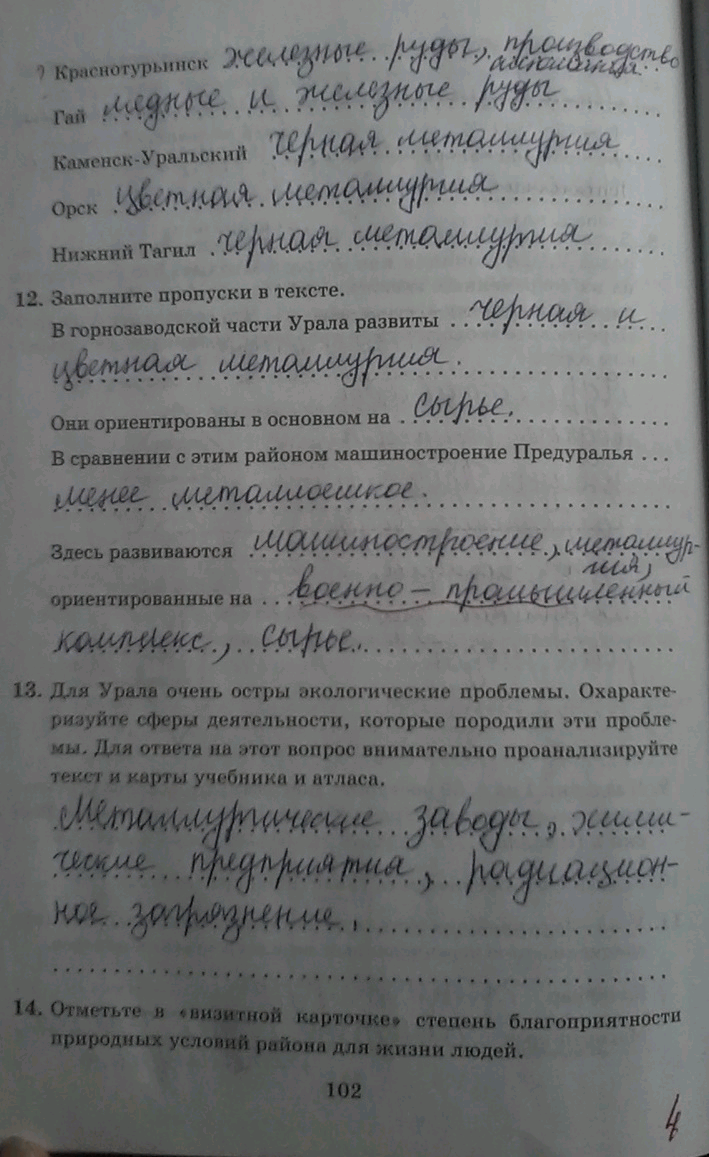 ? Краснотурьинск железные руды, производство
алюминия
Гай медные и железные руды
Каменск-Уральский черная металлургия
Орск цветная металлургия
Нижний Тагил черная металлургия
12. Заполните пропуски в тексте.
В горнозаводской части Урала развиты черная и
цветная металлургия.
Они ориентированы в основном на сырье.
В сравнении с этим районом машиностроение Предуралья ...
менее металлоемкое.
Здесь развиваются машиностроение, металлур-
гия,
ориентированные на военно-промышленный
комплекс, сырье.
13. Для Урала очень остры экологические проблемы. Охаракте-
ризуйте сферы деятельности, которые породили эти пробле-
мы. Для ответа на этот вопрос внимательно проанализируйте
текст и карты учебника и атласа.
Металлургические заводы, хими-
ческие предприятиа, радиацион-
ное загрязнение.
14. Отметьте в «визитной карточке» степень благоприятности
природных условий района для жизни людей.
102
4